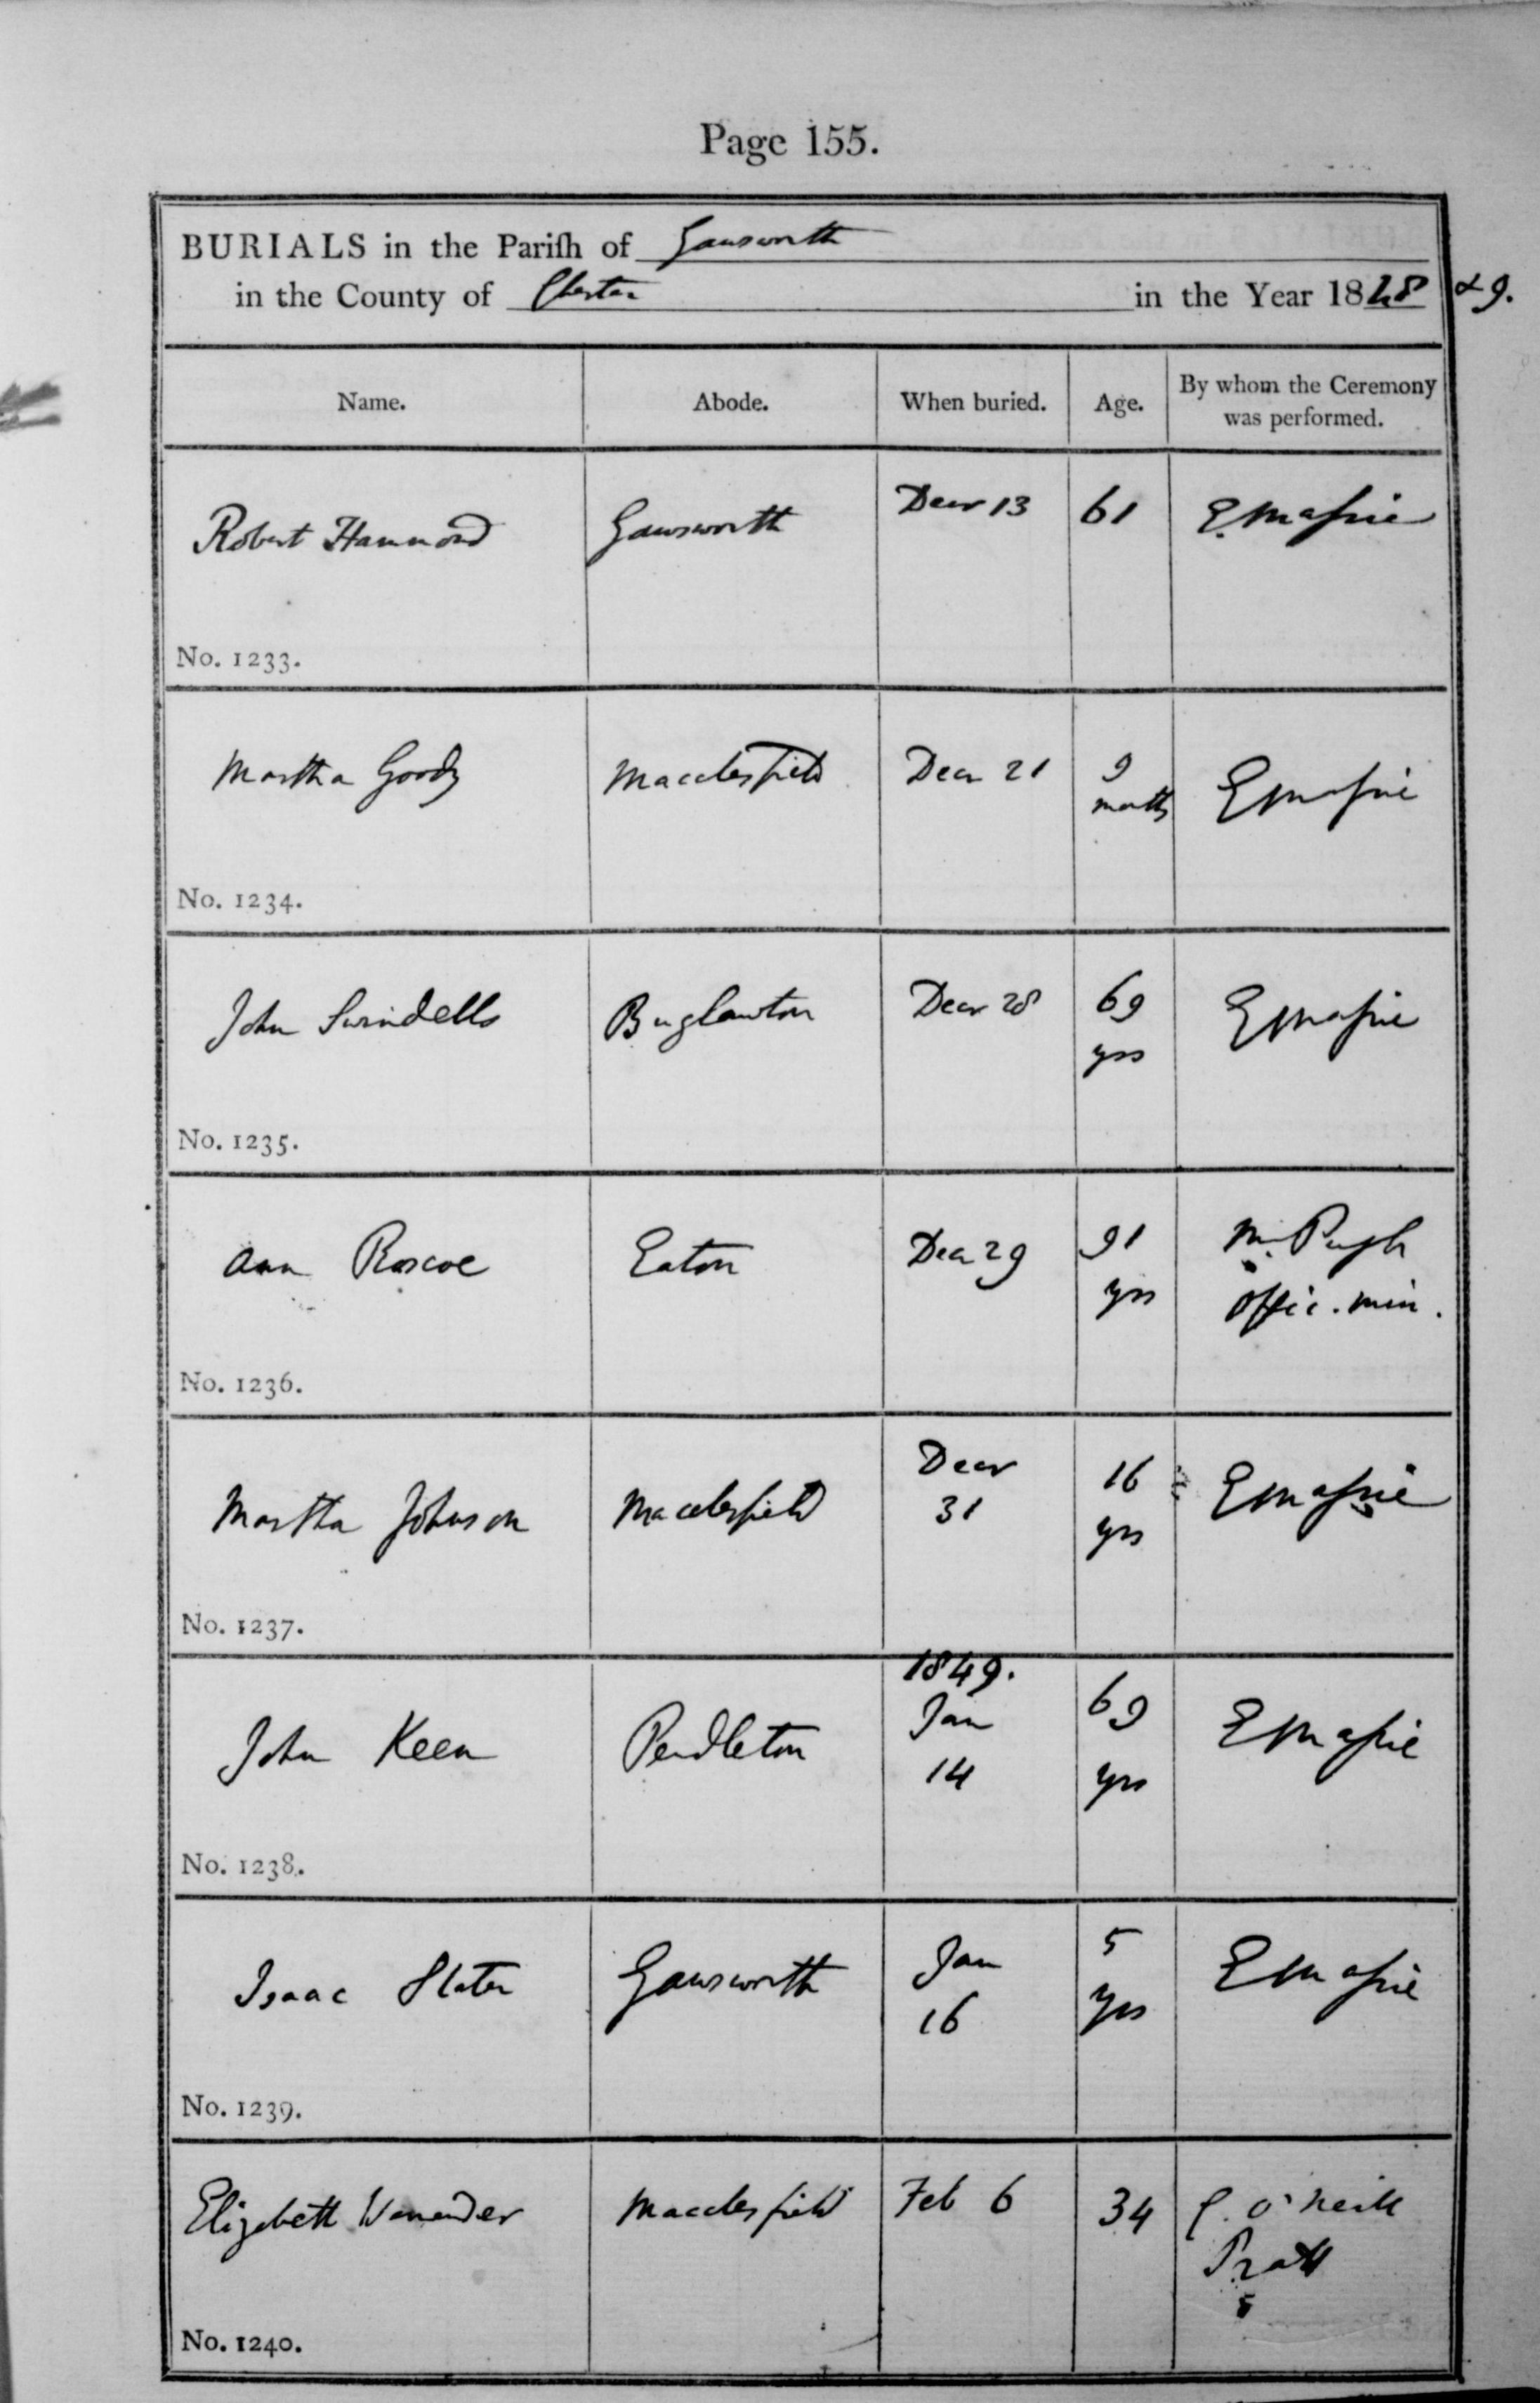 Page 155.
BURIALS in the Pariſh of Gawsworth
in the County of Chester in the Year 1848 & 9.
Name. Abode. When buried. Age. By whom the Ceremony was performed.
Robert Hammond Gawsworth Decr 13 61 E. Massie
No. 1233.
Martha Goody Macclesfield Decr 21 9 months E Massie
No. 1234.
John Swindells Buglawton Decr 28 69 yrs E Massie
No. 1235.
Ann Roscoe Eaton Decr 29 91 yrs M. Pugh Offic. Min.
No. 1236.
Martha Johnson Macclesfield Decr 31 16 yrs E Massie
No. 1237.
John Keen Pendleton 1849. Jan 14 69 yrs E Massie
No. 1238.
Isaac Slater Gawsworth Jan 16 5 yrs E Massie
No. 1239.
Elizabeth Macclesfield Feb 6 34 O'Neill Pratt
No. 1240.